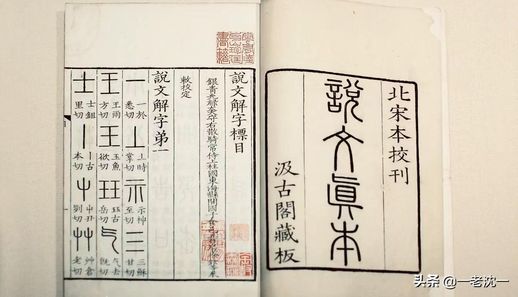 北宋本校刊
說文眞本
汲古閣藏板
說文解字標目
右散騎常侍上柱國東海縣開國子食邑五百戶
敕校定
說文解字弟一
一 於悉切 丄 時掌切 示 神至切 三 穌甘切
王 雨方切 玉 魚欲切 玨 古岳切 气 去既切
士 鉏里切 丨 古本切 屮 丑列切 艸 倉老切
头条 @一老沈一